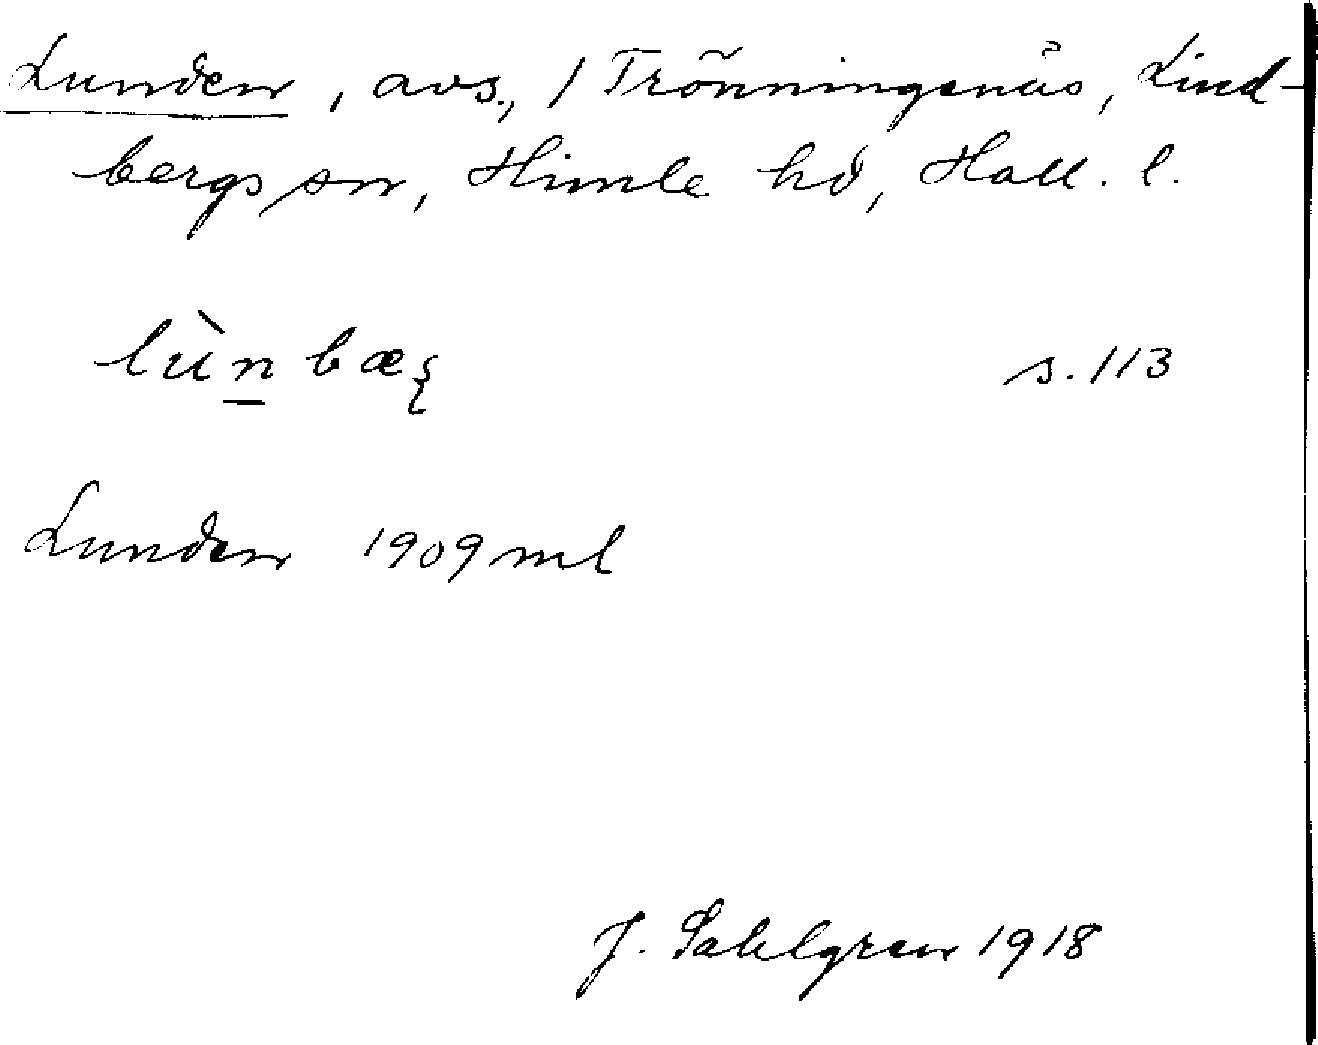 Lunden, avs., / Trönningenäs, Lind-
bergs sn, Himle hd, Hall. l.
lùn bæ s. 113
Lunden 1909 ml
J. Sahlgren 1918